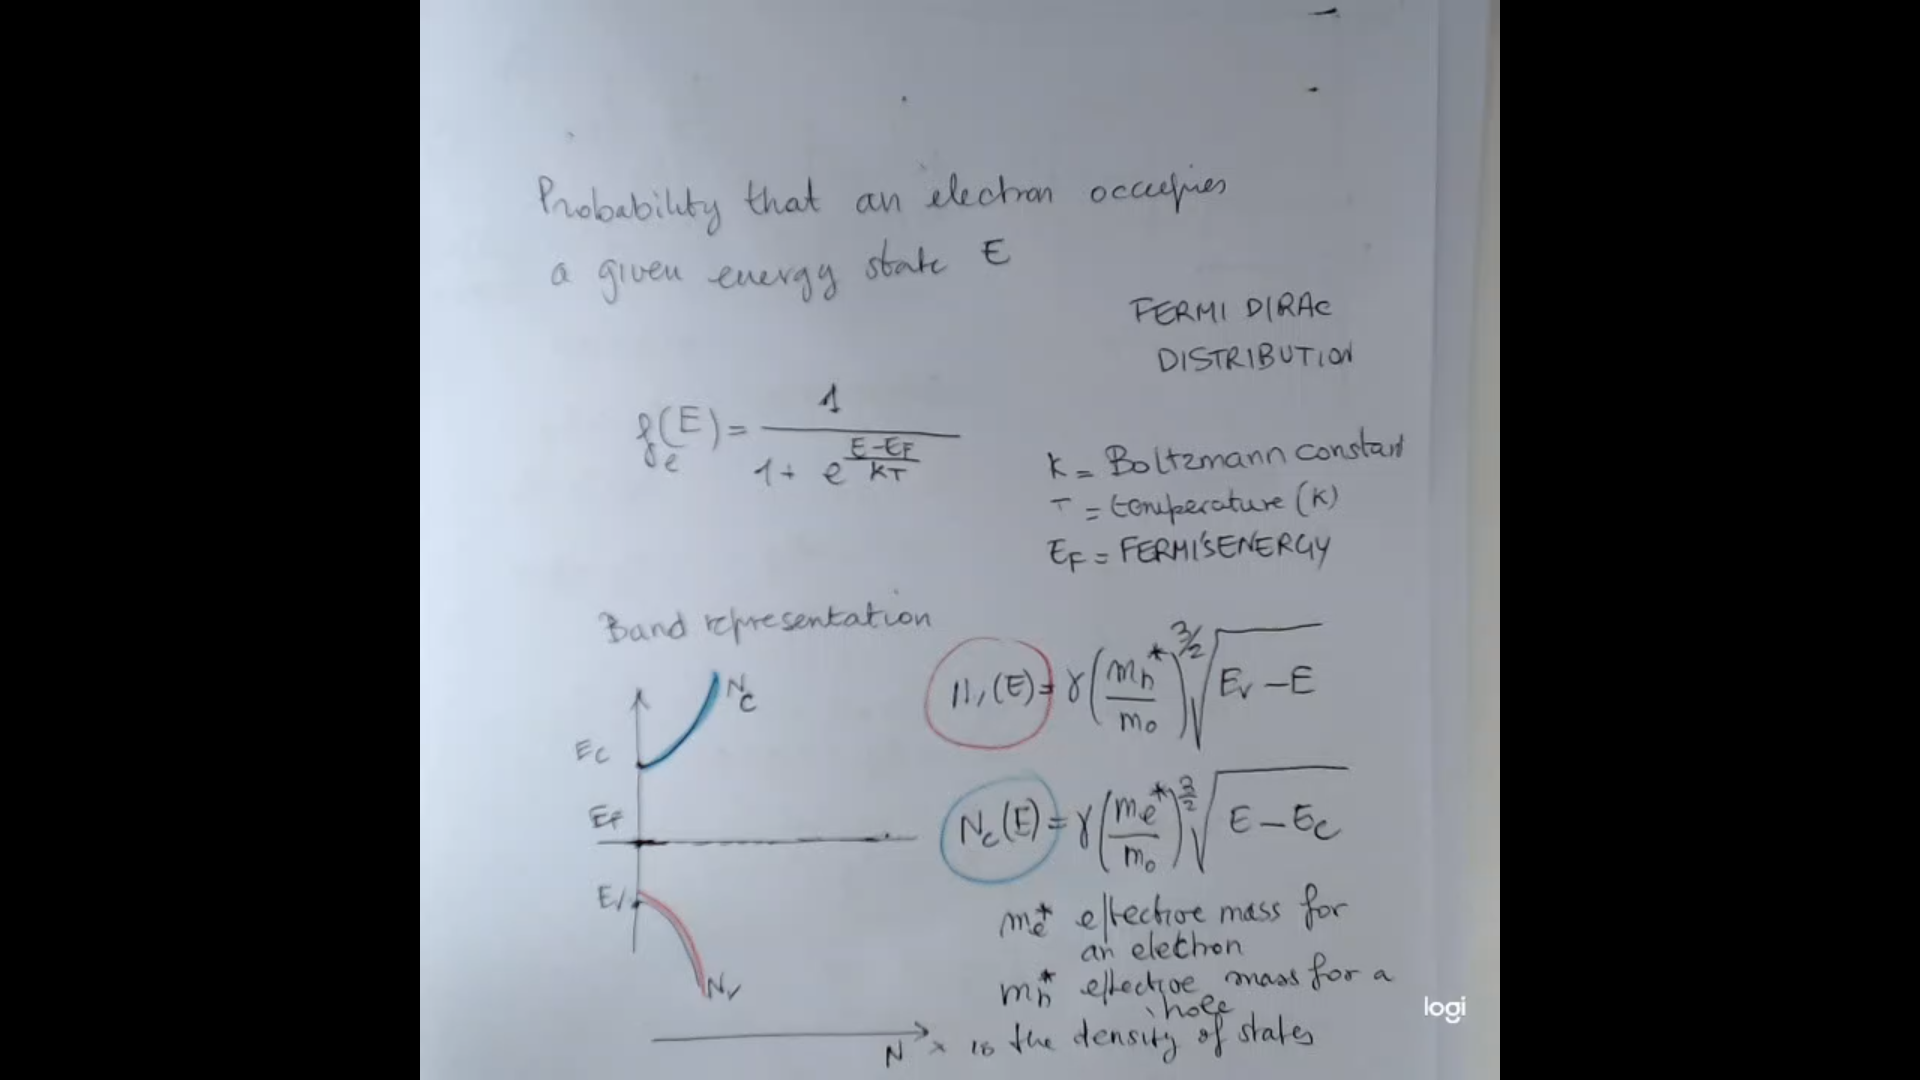 Probability that an electron occupies
a given energy state E
FERMI DIRAC
DISTRIBUTION
f_e(E) = 1 / (1 + e^((E - E_F)/KT))
K = Boltzmann constant
T = temperature (K)
E_F = FERMI'S ENERGY
Band representation
N_v(E) = γ (m_h^*/m_0)^(3/2) √(E_v - E)
N_c
E_c
N_c(E) = γ (m_e^*/m_0)^(3/2) √(E - E_c)
E_F
E_v
m_e^* effective mass for
an electron
m_h^* effective mass for a
hole
N_v
logi
N × is the density of states